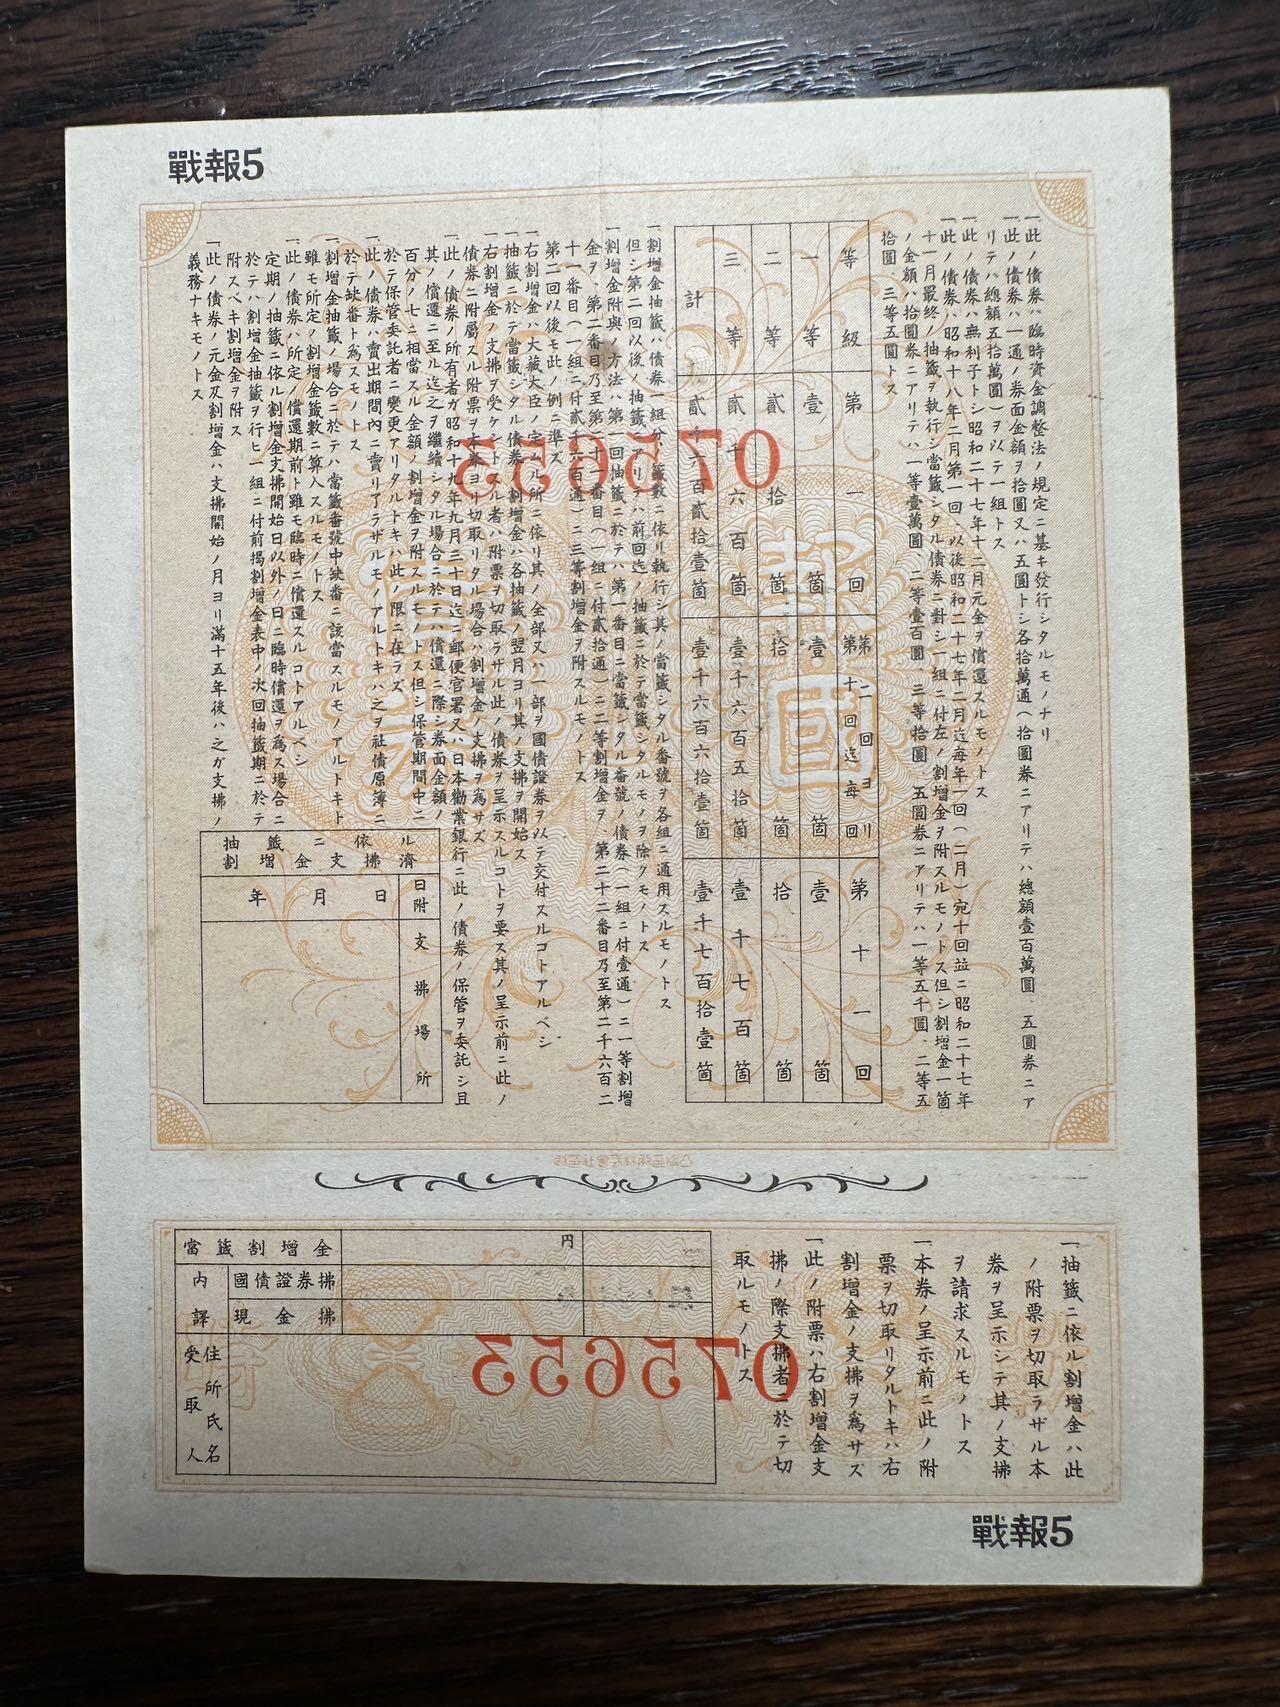 戰報5
一、此ノ債券ハ臨時資金調整法ノ規定ニ基キ發行シタルモノナリ
一、此ノ債券ハ一通ノ券面金額ヲ拾圓又ハ五圓トシ各拾萬通(拾圓券ニアリテハ總額壹百萬圓、五圓券ニア
リテハ總額五拾萬圓)ヲ以テ一組トス
一、此ノ債券ハ無利子トシ昭和二十七年十二月元金ヲ償還スルモノトス
一、此ノ債券ハ昭和十八年二月第一回、以後昭和二十七年二月迄每年一回(二月)宛十回益ニ昭和二十七年
十一月最終ノ抽籤ヲ執行シ當籤シタル債券ニ對シ一組ニ付左ノ割增金ヲ附スルモノトス但シ割增金一箇
ノ金額ハ拾圓券ニアリテハ一等壹萬圓、二等壹百圓、三等拾圓、五圓券ニアリテハ一等五千圓、二等五
拾圓、三等五圓トス
等級 第一回 第二回ヨリ第十回迄每回 第十一回
一等 壹箇 壹箇 壹箇
二等 貳拾箇 拾箇 拾箇
三等 貳千六百箇 壹千六百五拾箇 壹千七百箇
計 貳千六百貳拾壹箇 壹千六百六拾壹箇 壹千七百拾壹箇
一、割增金抽籤ハ債券一組分ノ籤數ニ依リ執行シ其ノ當籤シタル番號ヲ各組ニ通用スルモノトス
但シ第二回以後ノ抽籤ニアリテハ前回迄ノ抽籤ニ於テ當籤シタルモノヲ除クモノトス
一、割增金附與ノ方法ハ第一回抽籤ニ於テハ第一番目ニ當籤シタル番號ノ債券(一組ニ付壹通)ニ一等割增
金ヲ、第二番目乃至第二十一番目(一組ニ付貳拾通)ニ二等割增金ヲ、第二十二番目乃至第二千六百二
十一番目(一組ニ付貳千六百通)ニ三等割增金ヲ附スルモノトス
第二回以後モ此ノ例ニ準ズ
一、右割增金ハ大藏大臣ノ定ムル所ニ依リ其ノ全部又ハ一部ヲ國債證券ヲ以テ交付スルコトアルベシ
一、抽籤ニ於テ當籤シタル債券ノ割增金ハ各抽籤ノ翌月ヨリ其ノ支拂ヲ開始ス
一、右割增金ノ支拂ヲ受ケントスル者ハ附票ヲ切取ラザル此ノ債券ヲ呈示スルコトヲ要ス其ノ呈示前ニ此ノ
債券ニ附屬スル附票ヲ本券ヨリ切取リタル場合ハ割增金ノ支拂ヲ爲サズ
一、此ノ債券ノ所有者ガ昭和十九年九月三十日迄ニ郵便官署又ハ日本勸業銀行ニ此ノ債券ノ保管ヲ委託シ且
其ノ償還ニ至ル迄之ヲ繼續シタル場合ニ於テハ償還ニ際シ券面金額ノ
百分ノ七ニ相當スル金額ノ割增金ヲ附スルモノトス但シ保管期間中ニ
於テ保管委託者ニ變更アリタルトキハ此ノ限ニ在ラズ
一、此ノ債券ハ賣出期間內ニ賣リ了ラザルモノアルトキハ之ヲ社債原簿ニ
於テ缺番ト爲スモノトス
一、割增金抽籤ノ場合ニ於テハ當籤番號中缺番ニ該當スルモノアルトキト
雖モ所定ノ割增金籤數ニ算入スルモノトス
一、此ノ債券ハ所定ノ償還期前ト雖モ臨時ニ償還スルコトアルベシ
定期ノ抽籤ニ依ル割增金支拂開始日以外ノ日ニ臨時償還ヲ爲ス場合ニ
於テハ割增金抽籤ヲ行ヒ一組ニ付前揭割增金表中ノ次回抽籤期ニ於テ
附スベキ割增金ヲ附ス
一、此ノ債券ノ元金及割增金ハ支拂開始ノ月ヨリ滿十五年後ハ之ガ支拂ノ
義務ナキモノトス
075653
報國
抽籤ニ依ル
割增金支拂濟
日附
年 月 日
支拂場所
一、抽籤ニ依ル割增金ハ此
ノ附票ヲ切取ラザル本
券ヲ呈示シテ其ノ支拂
ヲ請求スルモノトス
一、本券ノ呈示前ニ此ノ附
票ヲ切取リタルトキハ右
割增金ノ支拂ヲ爲サズ
一、此ノ附票ハ右割增金支
拂ノ際支拂者ニ於テ切
取ルモノトス
當籤割增金 円
內譯
國債證券拂
現金拂
受取人
住所氏名
075653
戰報5